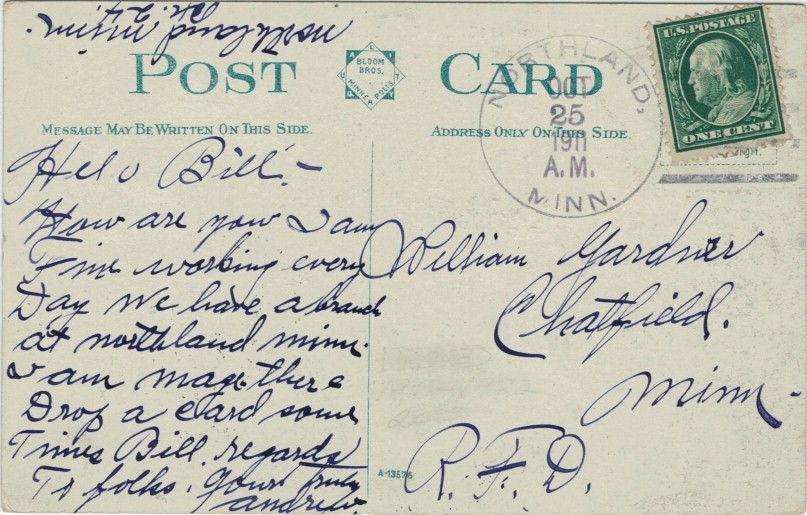 northland minn.
POST CARD
BLOOM BROS.
MINNEAPOLIS
MESSAGE MAY BE WRITTEN ON THIS SIDE.
ADDRESS ONLY ON THIS SIDE.
NORTHLAND,
OCT
25
1911
A.M.
MINN.
U.S. POSTAGE
ONE CENT
Helo Bill -
How are you I am
Fine working every
Day We have a branch
at northland minn.
I am mage there
Drop a card some
Times Bill. regards
To folks. Yours truly
andrew.
William Gardner
Chatfield.
Minn-
R. F. D.
A-13575